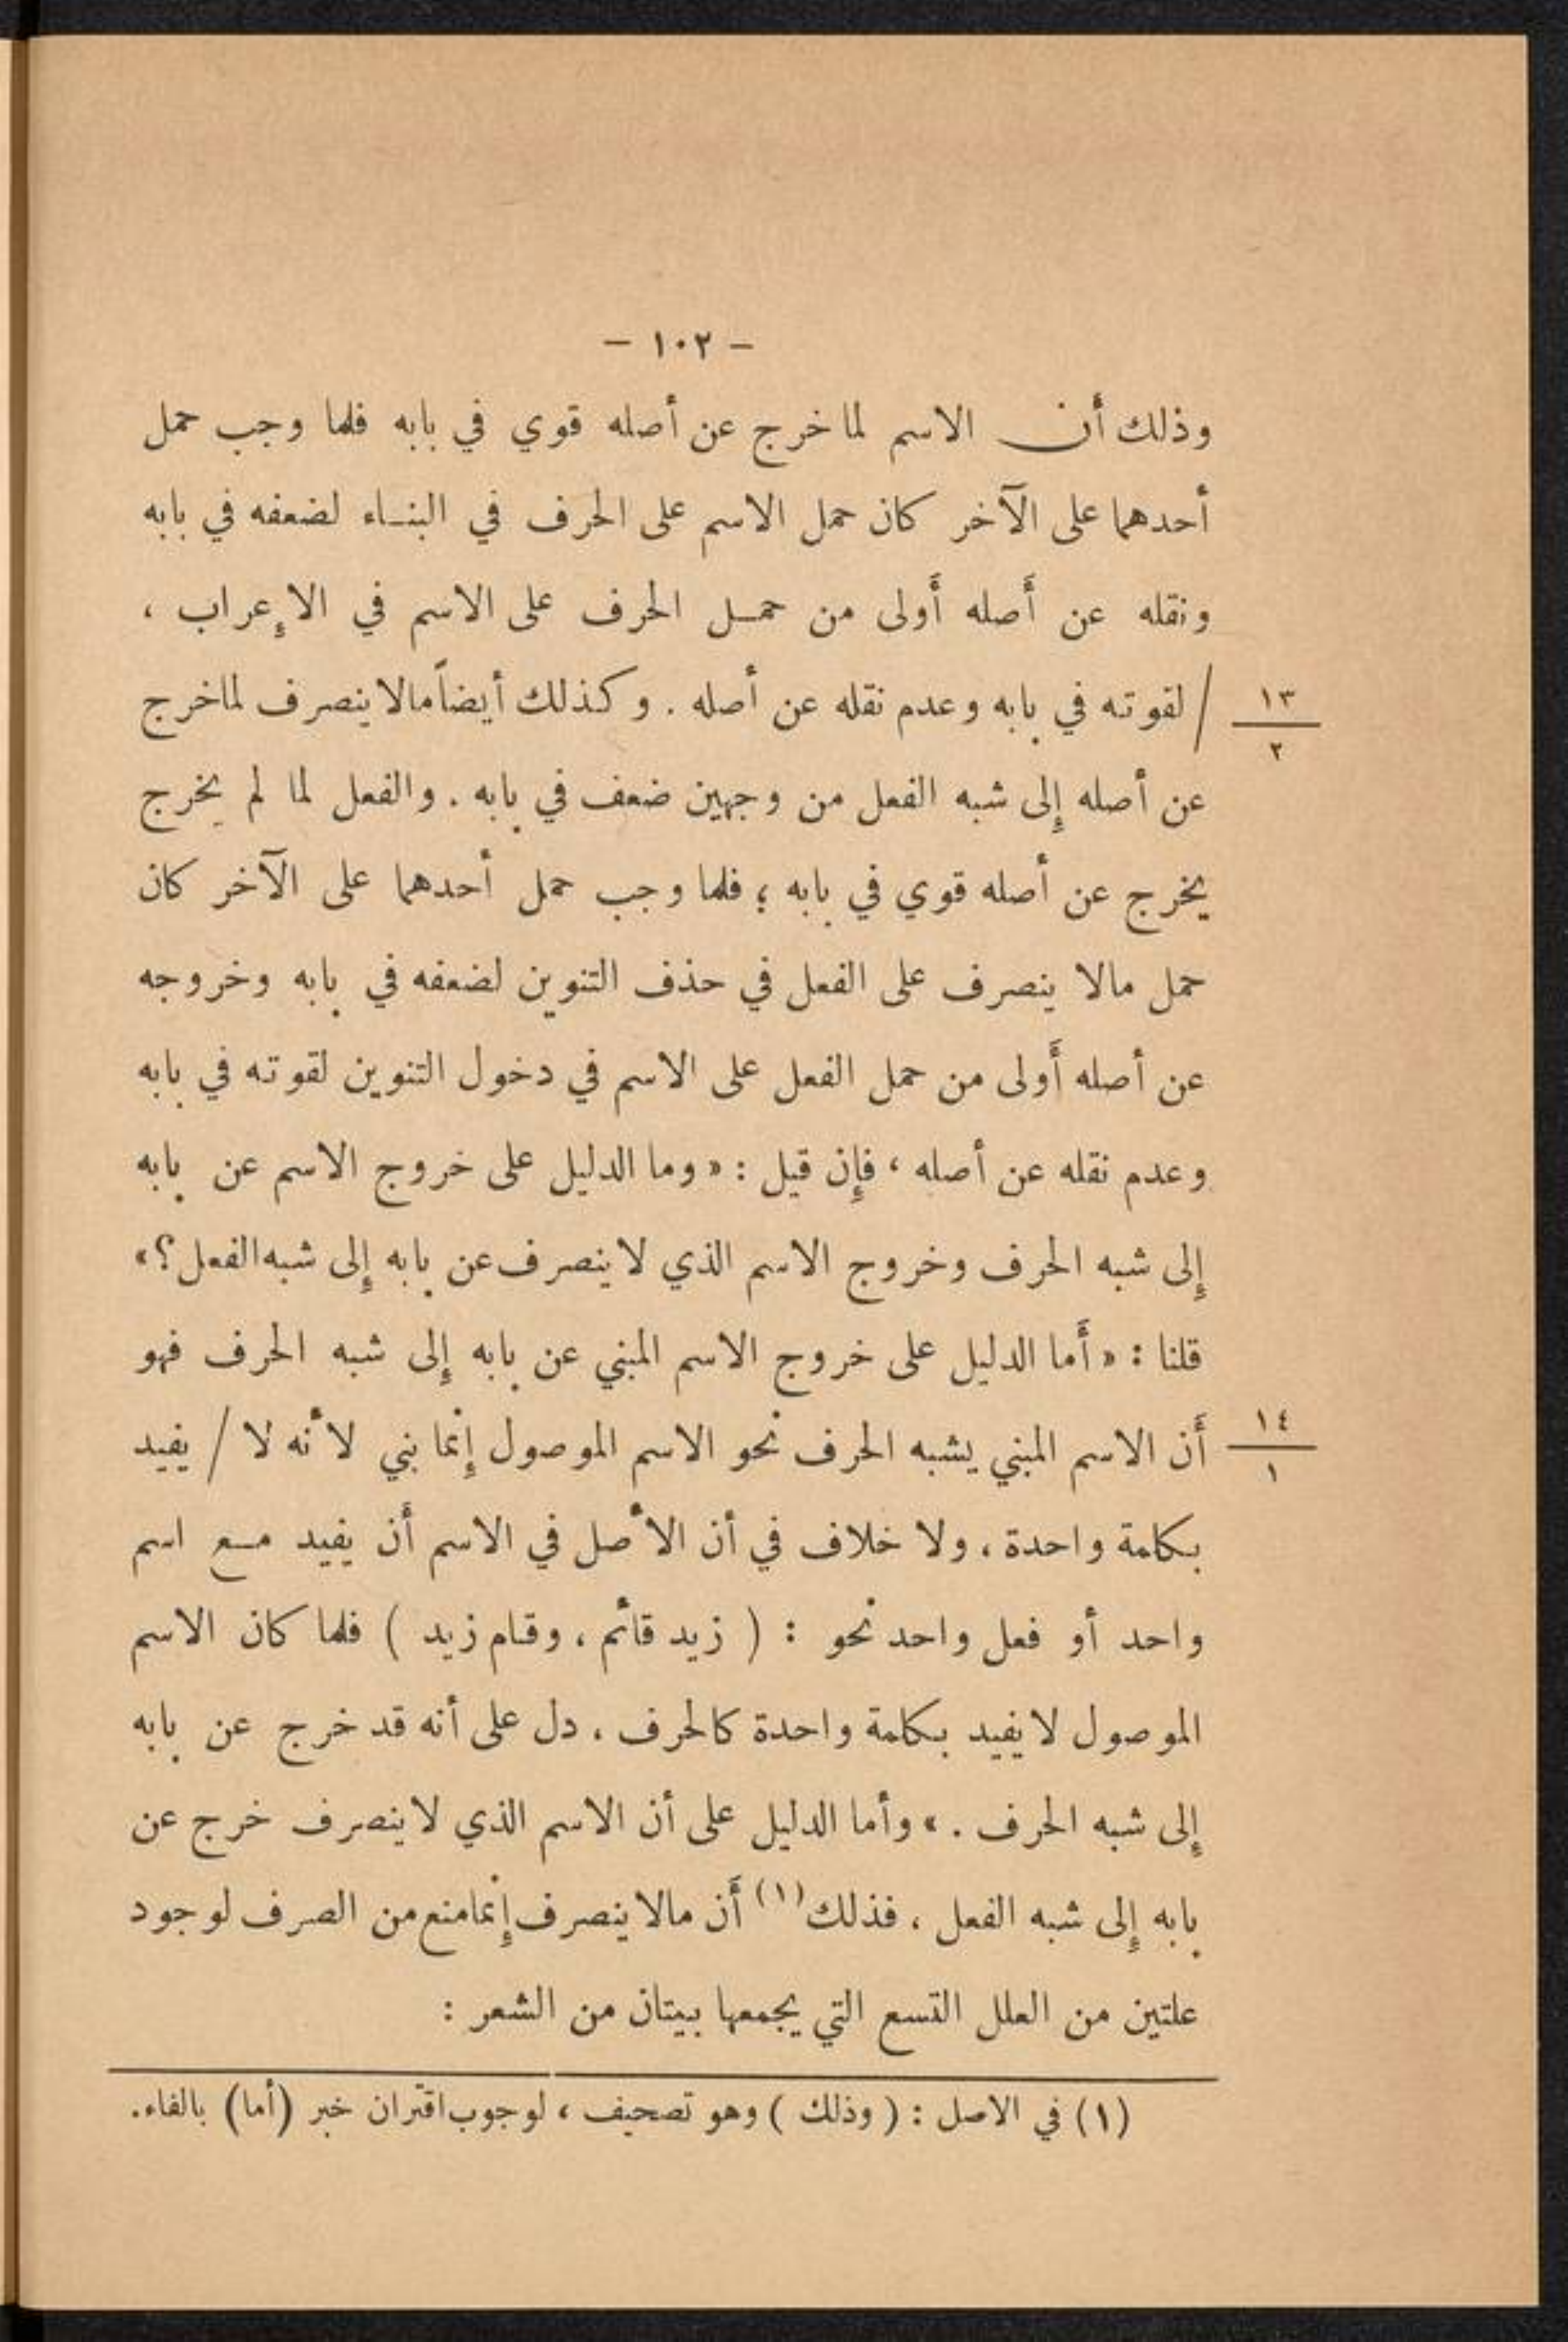 – ١٠٢ –
وذلك أن الاسم لما خرج عن أصله قوي في بابه فلما وجب حمل
أحدهما على الآخر كان حمل الاسم على الحرف في البناء لضعفه في بابه
ونقله عن أصله أولى من حمل الحرف على الاسم في الإعراب ،
١٣
٢
/ لقوته في بابه وعدم نقله عن أصله . وكذلك أيضاً مالا ينصرف لما خرج
عن أصله إلى شبه الفعل من وجهين ضعف في بابه . والفعل لما لم يخرج
يخرج عن أصله قوي في بابه ؛ فلما وجب حمل أحدهما على الآخر كان
حمل مالا ينصرف على الفعل في حذف التنوين لضعفه في بابه وخروجه
عن أصله أولى من حمل الفعل على الاسم في دخول التنوين لقوته في بابه
وعدم نقله عن أصله ، فإن قيل : « وما الدليل على خروج الاسم عن بابه
إلى شبه الحرف وخروج الاسم الذي لا ينصرف عن بابه إلى شبه الفعل ؟ »
قلنا : « أما الدليل على خروج الاسم المبني عن بابه إلى شبه الحرف فهو
١٤
١
أن الاسم المبني يشبه الحرف نحو الاسم الموصول إنما بني لأنه لا / يفيد
بكلمة واحدة ، ولا خلاف في أن الأصل في الاسم أن يفيد مع اسم
واحد أو فعل واحد نحو : ( زيد قائم ، وقام زيد ) فلما كان الاسم
الموصول لا يفيد بكلمة واحدة كالحرف ، دل على أنه قد خرج عن بابه
إلى شبه الحرف . » وأما الدليل على أن الاسم الذي لا ينصرف خرج عن
بابه إلى شبه الفعل ، فذلك (١) أن مالا ينصرف إنما منع من الصرف لوجود
علتين من العلل التسع التي يجمعها بيتان من الشعر :
(١) في الاصل : ( وذلك ) وهو تصحيف ، لوجوب اقتران خبر (أما) بالفاء.